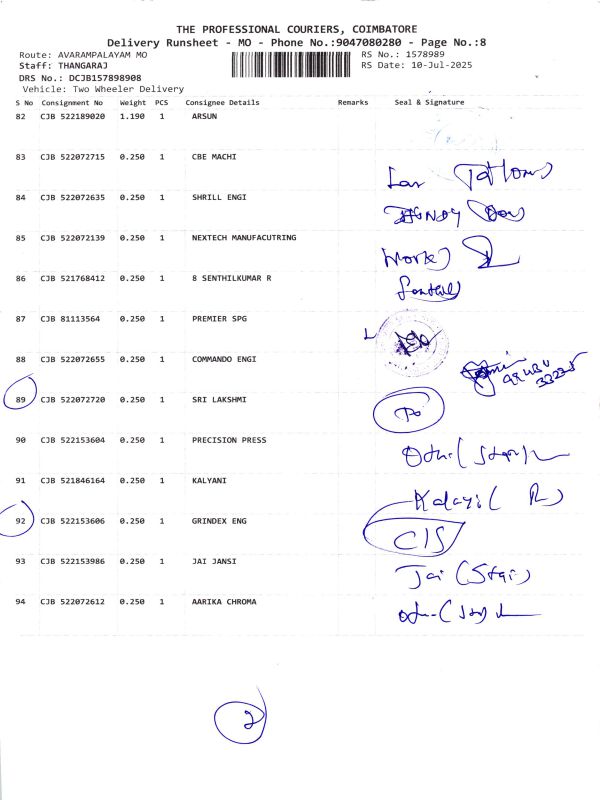 THE PROFESSIONAL COURIERS, COIMBATORE
Delivery Runsheet - MO - Phone No.:9047080280 - Page No.:8
Route: AVARAMPALAYAM MO
RS No.: 1578989
Staff: THANGARAJ
RS Date: 10-Jul-2025
DRS No.: DCJB157898908
Vehicle: Two Wheeler Delivery
S No Consignment No Weight PCS Consignee Details Remarks Seal & Signature
82 CJB 522189020 1.190 1 ARSUN
83 CJB 522072715 0.250 1 CBE MACHI
84 CJB 522072635 0.250 1 SHRILL ENGI
85 CJB 522072139 0.250 1 NEXTECH MANUFACUTRING
86 CJB 521768412 0.250 1 8 SENTHILKUMAR R
87 CJB 81113564 0.250 1 PREMIER SPG
88 CJB 522072655 0.250 1 COMMANDO ENGI
89 CJB 522072720 0.250 1 SRI LAKSHMI
90 CJB 522153604 0.250 1 PRECISION PRESS
91 CJB 521846164 0.250 1 KALYANI
92 CJB 522153606 0.250 1 GRINDEX ENG CIS
93 CJB 522153986 0.250 1 JAI JANSI Jai
94 CJB 522072612 0.250 1 AARIKA CHROMA
2